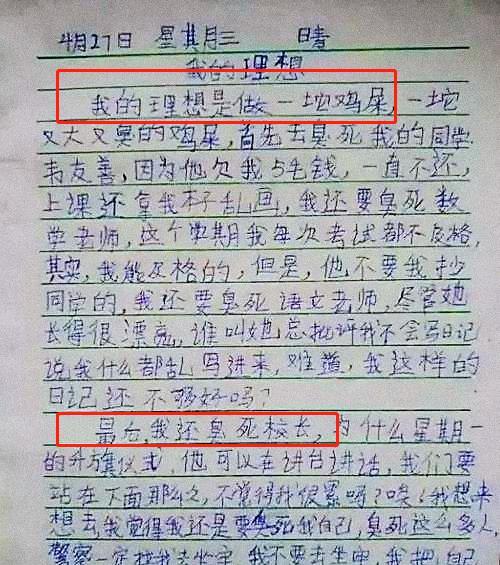 4月27日 星其月三 晴
我的理想
我的理想是做一坨鸡屎,一坨
又大又臭的鸡屎,首先去臭死我的同学
韦友善,因为他欠我5毛钱,一直不还,
上课还拿我本子乱画,我还要臭死数
学老师,这个学期我每次考试都不及格,
其实,我能及格的,但是,他不要我抄
同学的,我还要臭死语文老师,尽管她
长得很漂亮,谁叫她总批评我不会写日记
说我什么都乱写进来,难道,我这样的
日记还不够好吗?
最后,我还臭死校长,为什么星期一
的升旗仪式,他可以在讲台讲话,我们要
站在下面那么久,不觉得我很累吗?唉!我想来
想去我觉得我还是要臭死我自己,臭死这么多人,
警察一定找我去坐牢,我不要去坐牢,我把自己